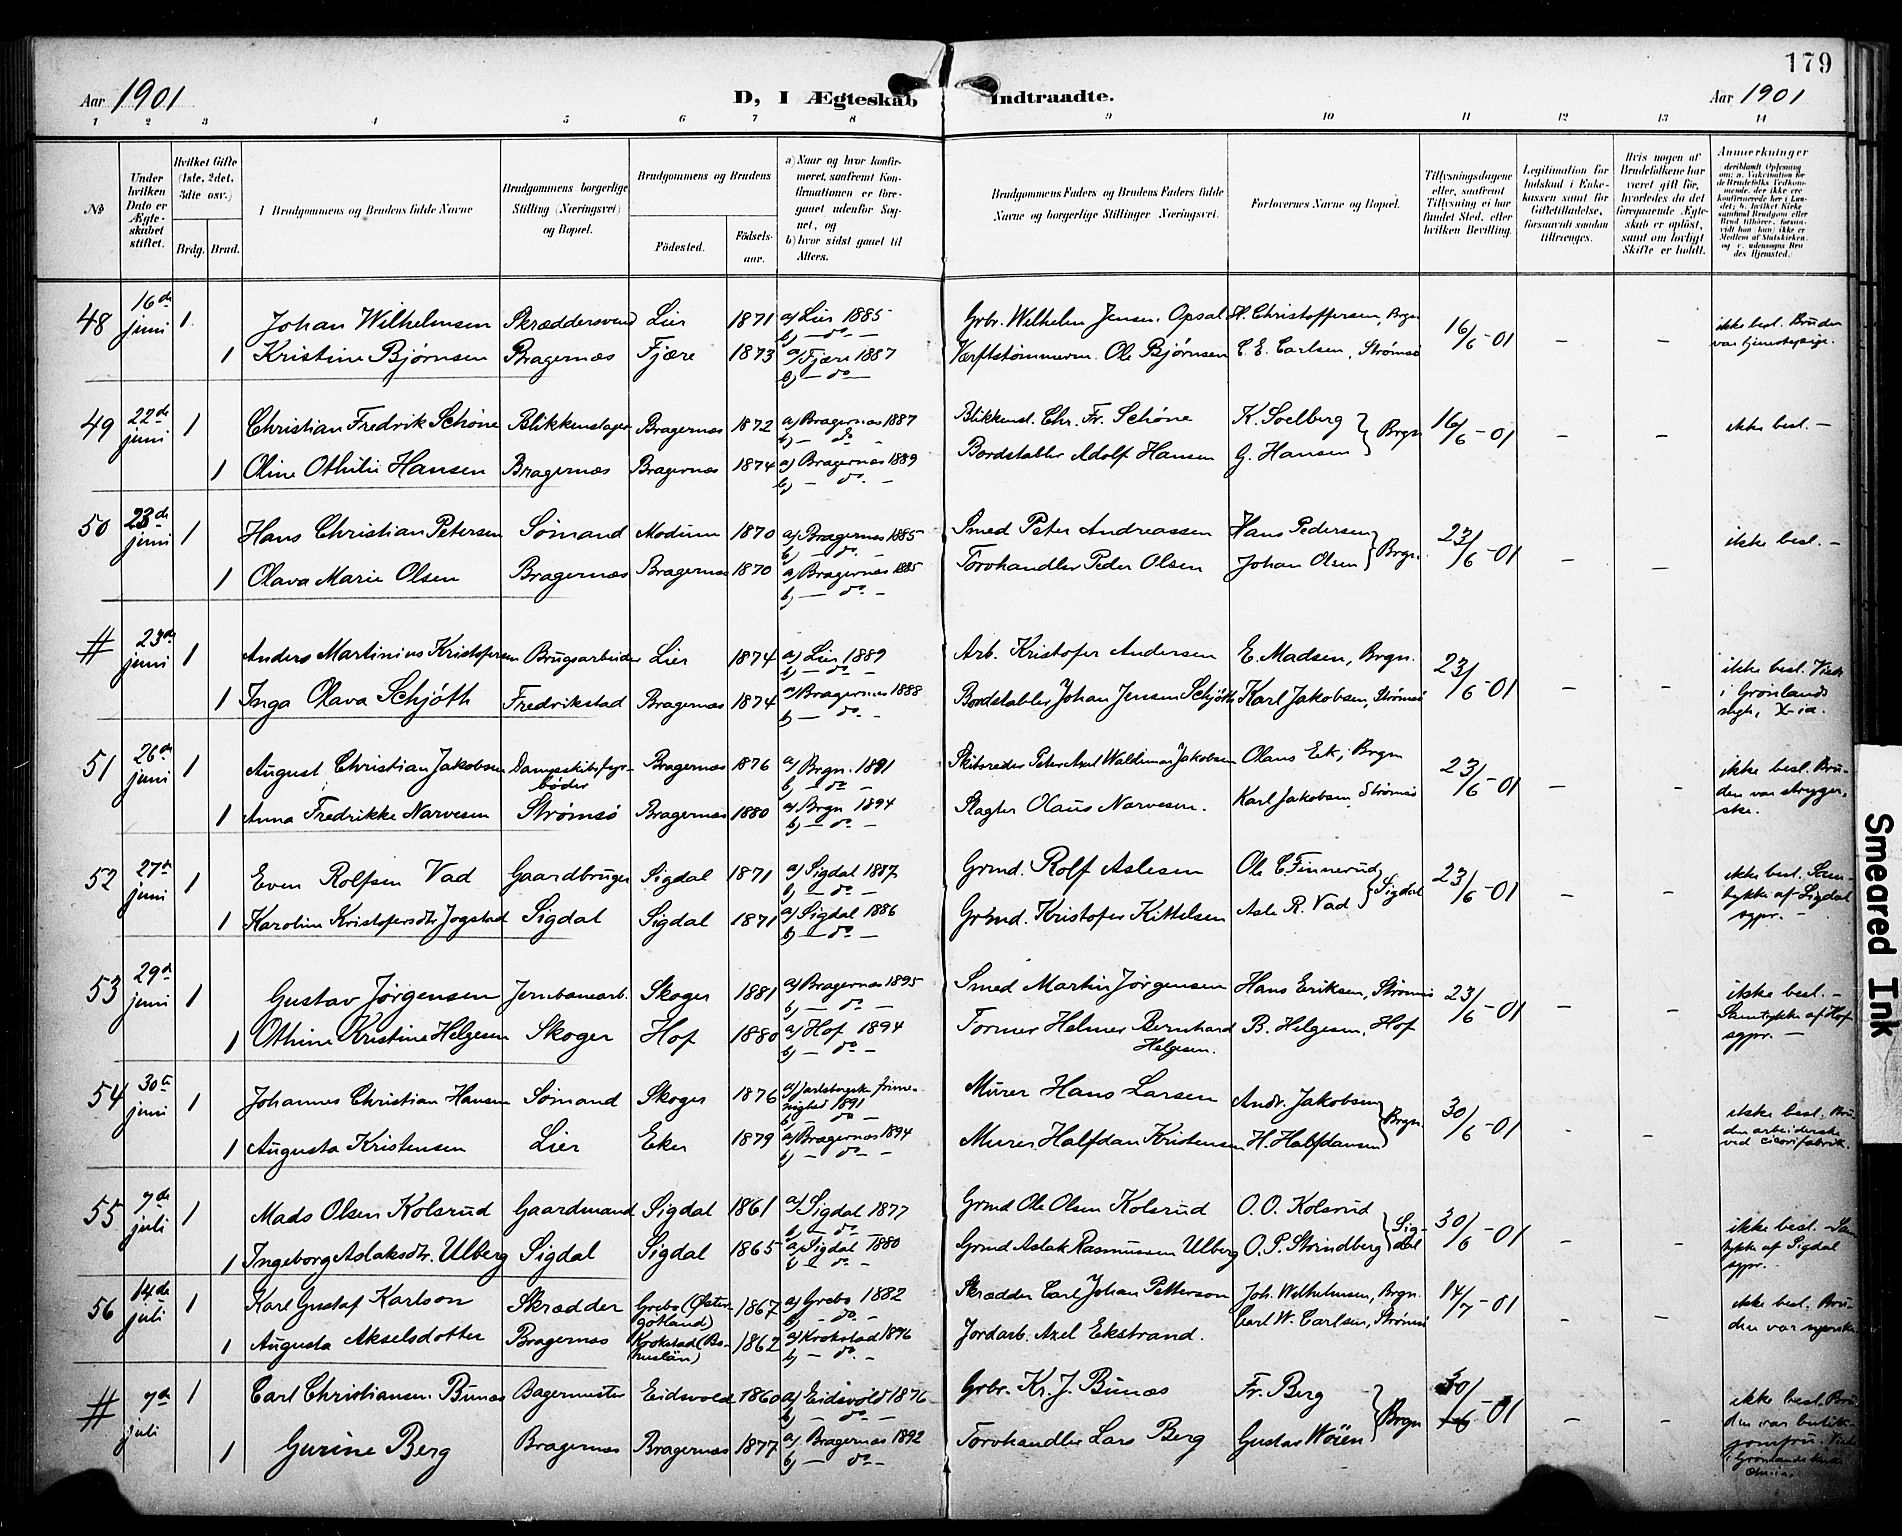 179
Aar 1901
D, I Ægteskab Indtraadte.
Aar 1901
1 2 3 4 5 6 7 8 9 10 11 12 13 14
No
Under hvilken Dato er Ægteskabet stiftet.
Hvilket Gifte (1ste, 2det, 3die osv.)
Brdg. Brud.
I Brudgommens og Brudens fulde Navne
Brudgommens borgerlige Stilling (Næringsvei) og Bopæl.
Brudgommens og Brudens
Födested.
Födselsaar.
a) Naar og hvor konfirmeret, saafremt Konfirmationen er foregaaet udenfor Sognet, og
b) hvor sidst gaaet til Alters.
Brudgommens Faders og Brudens Faders fulde Navne og borgerlige Stillinger Næringsvei.
Forlovernes Navne og Bopæl.
Tillysningsdagene eller, saafremt Tillysning ei har fundet Sted, efter hvilken Bevilling.
Legitimation for Indskud i Enkekassen samt for Giftetilladelse, forsaavidt saadan tiltrænges.
Hvis nogen af Brudefolkene har været gift för, hvorledes da det foregaaende Ægteskab er oplöst, samt om lovligt Skifte er holdt.
Anmerkninger
48 16de juni 1 Johan Wilhelmsen Skræddersvend Lier 1871 a) Lier 1885 b) — do — Grbr. Wilhelm Jensen Opsal H. Christoffersen, Brgn 16/6-01 — — ikke besl. Bruden var tjenestepige.
1 Kristine Bjørnsen Bragernæs Fjære 1873 a) Fjære 1887 b) — do — Værftstømmerm. Ole Bjørnsen C. E. Carlsen, Strømsø
49 22de juni 1 Christian Fredrik Schøne Blikkenslager Bragernæs 1872 a) Bragernæs 1887 b) — do — Blikkensl. Chr. Fr. Schøne K. Soelberg } Brgn 16/6-01 — — ikke besl. —
1 Oline Othilie Hansen Bragernæs Bragernæs 1874 a) Bragernæs 1889 b) — do — Bordstabler Adolf Hansen G. Hansen
50 23de juni 1 Hans Christian Petersen Sømand Modum 1870 a) Bragernæs 1885 b) — do — Smed Peter Andreassen Hans Pedersen } Brgn. 23/6-01 — — ikke besl. —
1 Olava Marie Olsen Bragernæs Bragernæs 1870 a) Bragernæs 1885 b) — do — Torvhandler Peder Olsen Johan Olsen
# 23de juni 1 Anders Martinius Kristofersen Brugsarbeider Lier 1874 a) Lier 1889 b) — do — Arb. Kristofer Andersen E. Madsen, Brgn. 23/6-01 — — ikke besl. Viede i Grønlands mgh, X-ia.
1 Inga Olava Schjøth Fredrikstad Bragernæs 1874 a) Bragernæs 1888 b) — do — Bordstabler Johan Jensen Schjøth Karl Jakobsen, Strømsø
51 26de juni 1 August Christian Jakobsen Dampskibsfyrbøder Bragernæs 1876 a) Brgn. 1891 b) — do — Skibsreder Peter Axel Waldemar Jakobsen Olaus Eek, Brgn 23/6-01 — — ikke besl. Bruden var strygerske.
1 Anna Fredrikke Narvesen Strømsø Bragernæs 1880 a) Brgn 1894 b) — do — Slagter Olaus Narvesen. Karl Jakobsen, Strømsø
52 27de juni 1 Even Rolfsen Vad Gaardbruger Sigdal 1871 a) Sigdal 1887 b) — do — Grmd. Rolf Aslesen Ole C Finnerud } Sigdal 23/6-01 — — ikke besl. Samtykke af Sigdal sgpr. —
1 Karoline Kristofersdtr Jogstad Sigdal Sigdal 1871 a) Sigdal 1886 b) — do — Grmd. Kristofer Kittelsen Asle R. Vad
53 29de juni 1 Gustav Jørgensen Jernbanearb. Skoger 1881 a) Bragernæs 1895 b) — do — Smed Martin Jørgensen Hans Eriksen, Strømsø 23/6-01 — — ikke besl. — Samtykke af Hof sgpr. —
1 Othine Kristine Helgesen Skoger Hof 1880 a) Hof 1894 b) — do — Former Helmer Bernhard Helgesen. B. Helgesen, Hof
54 30te juni 1 Johannes Christian Hansen Sømand Skoger 1876 a) Jarlsbergske frimenighed 1891 b) — do — Murer Hans Larsen Andr. Jakobsen } Brgn. 30/6-01 — — ikke besl. Bruden arbeiderske ved cicorifabrik.
1 Augusta Kristensen Lier Eker 1879 a) Bragernæs 1894 b) — do — Murer Halfdan Kristensen H. Halfdansen
55 7de juli 1 Mads Olsen Kolsrud Gaardmand Sigdal 1861 a) Sigdal 1877 b) — do — Grmd Ole Olsen Kolsrud O. O. Kolsrud } Sigdal 30/6-01 — — ikke besl. Samtykke af Sigdal sgpr.
1 Ingeborg Aslaksdtr. Ulberg Sigdal Sigdal 1865 a) Sigdal 1880 b) — do — Grmd Aslak Rasmussen Ulberg O. P. Strindberg
56 14de juli 1 Karl Gustaf Karlson Skrædder Grebo (Østergötland) 1867 a) Grebo 1882 b) — do — Skrædder Carl Johan Petterson Joh. Wilhelmsen, Brgn. 14/7-01 — — ikke besl. Bruden var syerske
1 Augusta Akselsdotter Bragernæs Krokstad (Bohuslän) 1862 a) Krokstad 1876 b) — do — Jordarb. Axel Ekstrand. Carl W. Carlsen, Strømsø
# 7de juli 1 Carl Christiansen Bunæs Bagermester Eidsvold 1860 a) Eidsvold 1876 b) — do — Grbr. Kr. J. Bunæs Fr. Berg } Brgn 30/6-01 — — ikke besl. Bruden var butikjomfru.
1 Gurine Berg Bragernæs Bragernæs 1877 a) Bragernæs 1892 b) — do — Torvhandler Lars Berg Gustav Wöien
Smeared Ink